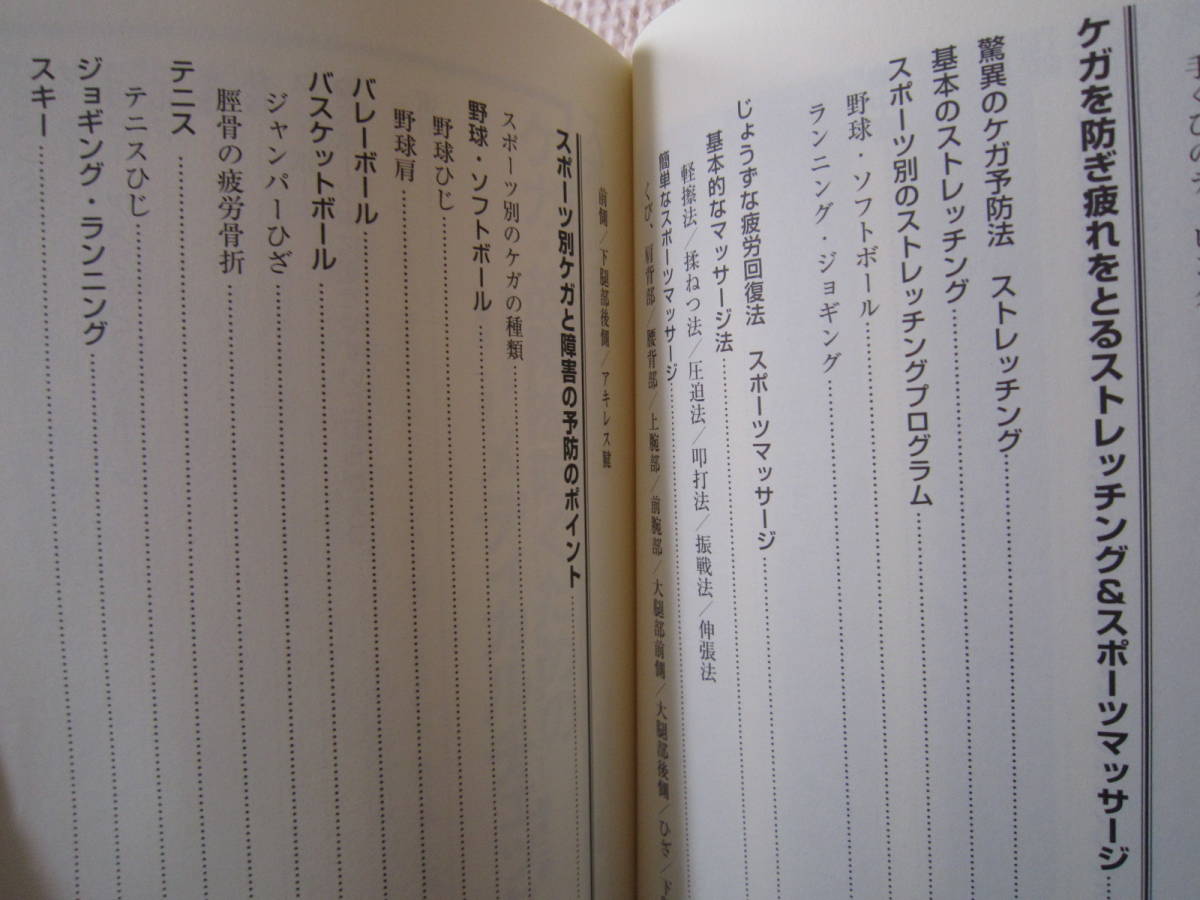 ケガを防ぎ疲れをとるストレッチング&スポーツマッサージ
驚異のケガ予防法 ストレッチング
基本のストレッチング
スポーツ別のストレッチングプログラム
野球・ソフトボール
ランニング・ジョギング
じょうずな疲労回復法 スポーツマッサージ
基本的なマッサージ法
軽擦法/揉ねつ法/圧迫法/叩打法/振戦法/伸張法
簡単なスポーツマッサージ
くび、肩背部/腰背部/上腕部/前腕部/大腿部前側/大腿部後側/ひざ/下
前側/下腿部後側/アキレス腱
スポーツ別ケガと障害の予防のポイント
スポーツ別のケガの種類
野球・ソフトボール
野球ひじ
野球肩
バレーボール
バスケットボール
ジャンパーひざ
脛骨の疲労骨折
テニス
テニスひじ
ジョギング・ランニング
スキー